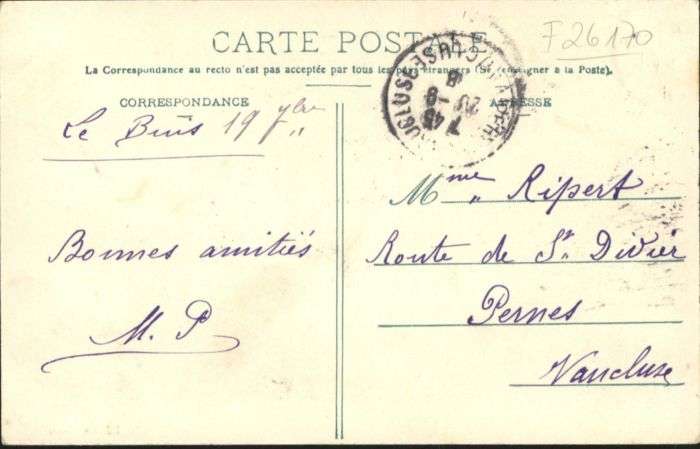 CARTE POSTALE
F26170
La Correspondance au recto n'est pas acceptée par tous les pays étrangers (Se renseigner à la Poste).
CORRESPONDANCE
ADRESSE
Le Buis 19 7bre
Bonnes amitiés
M. P
Mme Ripert
Route de St. Divier
Pernes
Vaucluse
VAUCLUSE
7 45
20 - 9